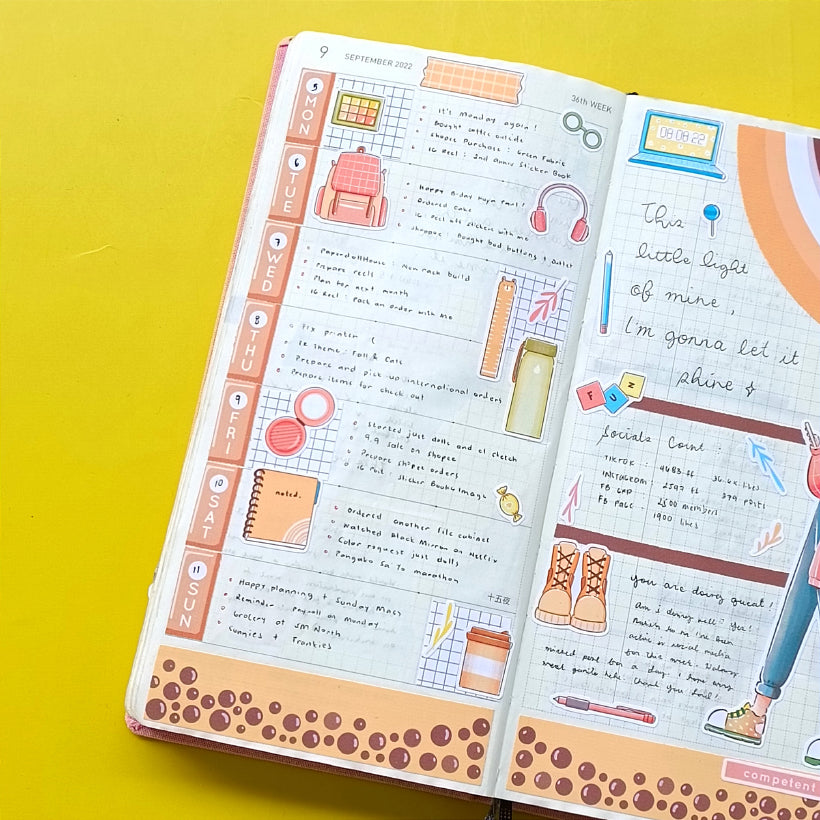 9 SEPTEMBER 2022
36th WEEK
5 MON
It's Monday again!
Bought coffee outside
Shopee Purchase : Green Fabric
IG Reel : 2nd Anniv Sticker Book
6 TUE
Happy B-day Kuya Paul!
Ordered Cake
IG : Peel off stickers with me
Shoppee : Bought bad buttons + outlet
7 WED
PaperdollHouse : New rack build
Prepare reels
Plan for next month
IG Reel : Pack an order with me
8 THU
Fix printer :(
IG theme : Fall & Cafe
Prepare and pick up international orders
Prepare items for check out
9 FRI
Started just dolls and el sketch
9.9 sale on shopee
Prepare shopee orders
IG Post : Sticker Book
10 SAT
noted.
Ordered another file cabinet
Watched Black Mirror on Netflix
Color request just dolls
Pangako Sa Yo marathon
十五夜
11 SUN
Happy planning + Sunday Mass
Reminder : Payroll on Monday
Grocery at SM North
Sunnies + Frankies
08:08:22
This
little light
of mine,
I'm gonna let it
shine
FUN
Socials Count :
TIKTOK : 4683 ff 36.6k likes
INSTAGRAM : 2597 ff 379 posts
FB GRP : 2500 members
FB PAGE : 1900 likes
you are doing great!
Am I doing well? Yes!
active in social media
for this week.
missed post for a day. I hope
Thank you Lord!
competent